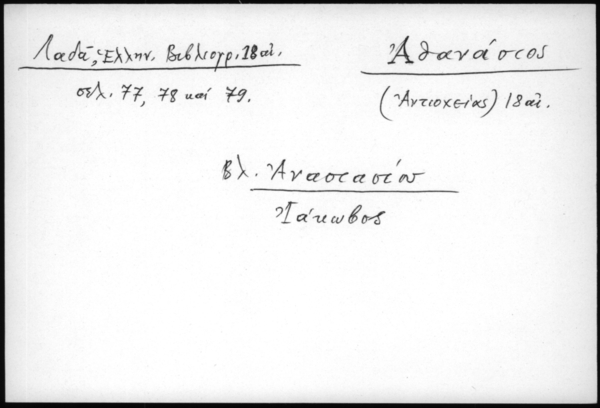 Λαδᾶ, Ἑλλην. Βιβλιογρ. 18 αἰ.
σελ. 77, 78 καί 79.
Ἀθανάσιος
(Ἀντιοχείας) 18 αἰ.
Βλ. Ἀναστασίου
Ἰάκωβος